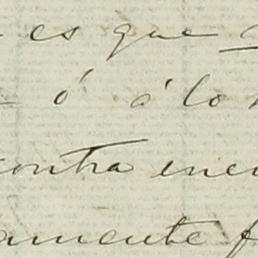 es que
ó á lo
contra
amente